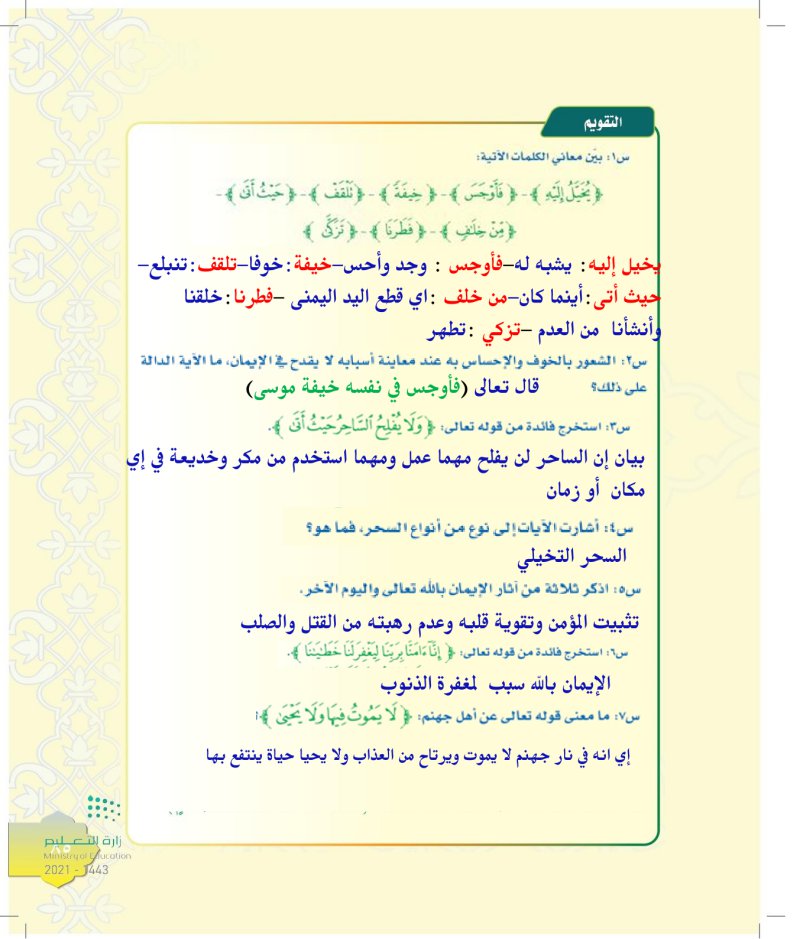 التقويم
س١: بيّن معاني الكلمات الآتية:
﴿ يُخَيَّلُ إِلَيْهِ ﴾- ﴿ فَأَوْجَسَ ﴾- ﴿ خِيفَةً ﴾ -﴿ تَلْقَفْ ﴾- ﴿ حَيْثُ أَتَى ﴾-
﴿ مِّنْ خِلَٰفٍ ﴾-﴿ فَطَرَنَا ﴾-﴿ تَزَكَّىٰ ﴾
يخيل إليه: يشبه له–فأوجس : وجد وأحس–خيفة:خوفا–تلقف:تنبلع–
حيث أتى:أينما كان–من خلف :اي قطع اليد اليمنى –فطرنا:خلقنا
وأنشأنا من العدم –تزكي :تطهر
س٢: الشعور بالخوف والإحساس به عند معاينة أسبابه لا يقدح في الإيمان، ما الآية الدالة
على ذلك؟ قال تعالى (فأوجس في نفسه خيفة موسى)
س٣: استخرج فائدة من قوله تعالى: ﴿ وَلَا يُفْلِحُ ٱلسَّاحِرُ حَيْثُ أَتَىٰ ﴾.
بيان إن الساحر لن يفلح مهما عمل ومهما استخدم من مكر وخديعة في إي
مكان أو زمان
س٤: أشارت الآيات إلى نوع من أنواع السحر، فما هو؟
السحر التخيلي
س٥: اذكر ثلاثة من آثار الإيمان بالله تعالى واليوم الآخر.
تثبيت المؤمن وتقوية قلبه وعدم رهبته من القتل والصلب
س٦: استخرج فائدة من قوله تعالى: ﴿ إِنَّآ ءَامَنَّا بِرَبِّنَا لِيَغْفِرَ لَنَا خَطَٰيَٰنَا ﴾.
الإيمان بالله سبب لمغفرة الذنوب
س٧: ما معنى قوله تعالى عن أهل جهنم: ﴿ لَا يَمُوتُ فِيهَا وَلَا يَحْيَىٰ ﴾؟
إي انه في نار جهنم لا يموت ويرتاح من العذاب ولا يحيا حياة ينتفع بها
زارة التعليم
٨٥
Ministry of Education
2021 - 1443